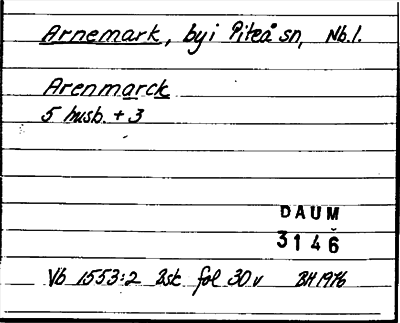 Arnemark, by i Piteå sn, Nb.l.
Arenmarck
5 husb. + 3
DAUM
3146
Vb 1553:2 Bsk fol 30 v BH 1976